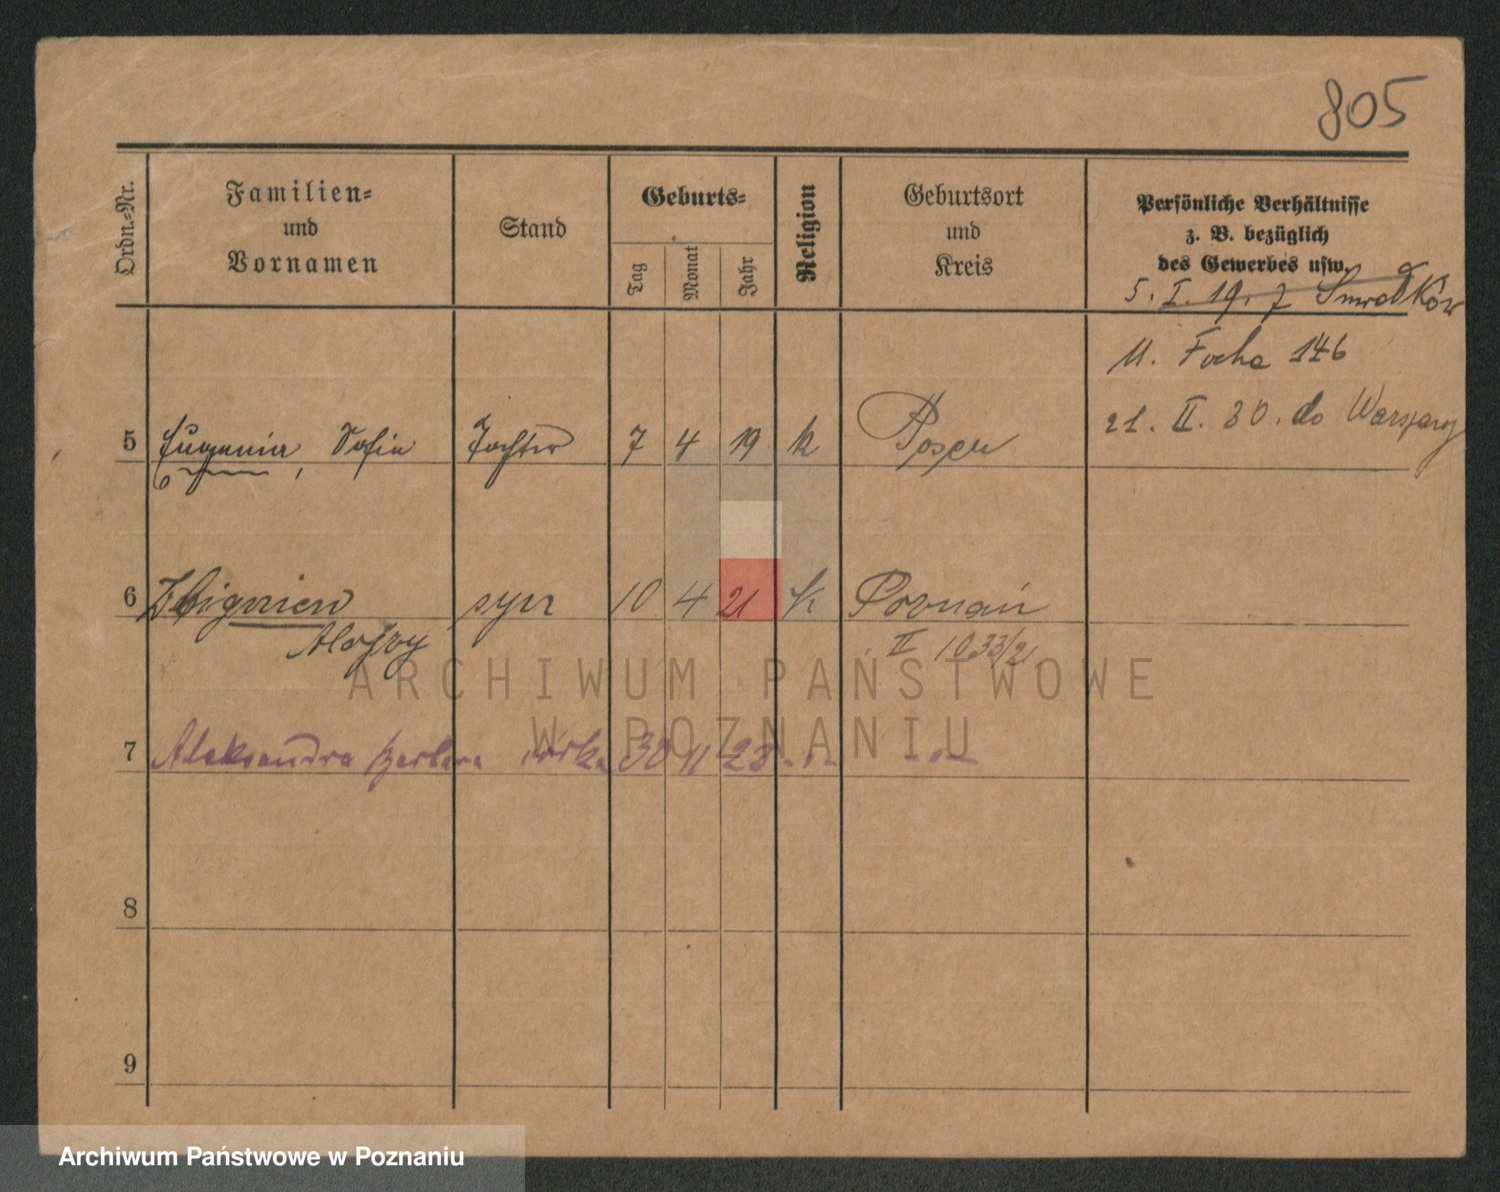 805
Ordn.=Nr.
Familien=
und
Vornamen
Stand
Geburts=
Tag
Monat
Jahr
Religion
Geburtsort
und
Kreis
Persönliche Verhältnisse
z. B. bezüglich
des Gewerbes usw.
5. I. 19. 7
Ul. Focha 146
21. II. 30. do Warszawy
5 Eugenia, Sofie Tochter 7 4 19 k Posen
6 Zbigniew syn 10 4 21 k Poznań
Alojzy II 1033/21
7 Aleksandra Barbara córka 30 11 23 - " - - " -
8
9
ARCHIWUM PAŃSTWOWE
W POZNANIU
Archiwum Państwowe w Poznaniu